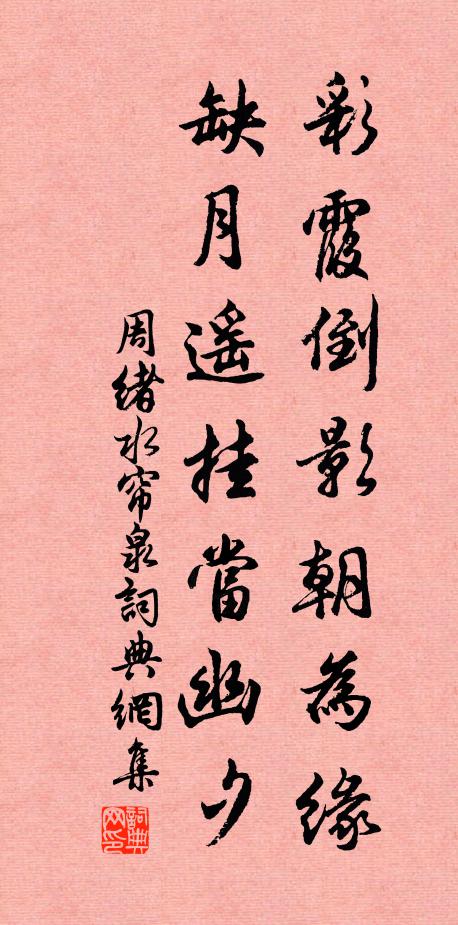 彩霞倒影朝為緣
缺月遥挂當幽夕
周緒水帘泉詞典網集
詞典网印